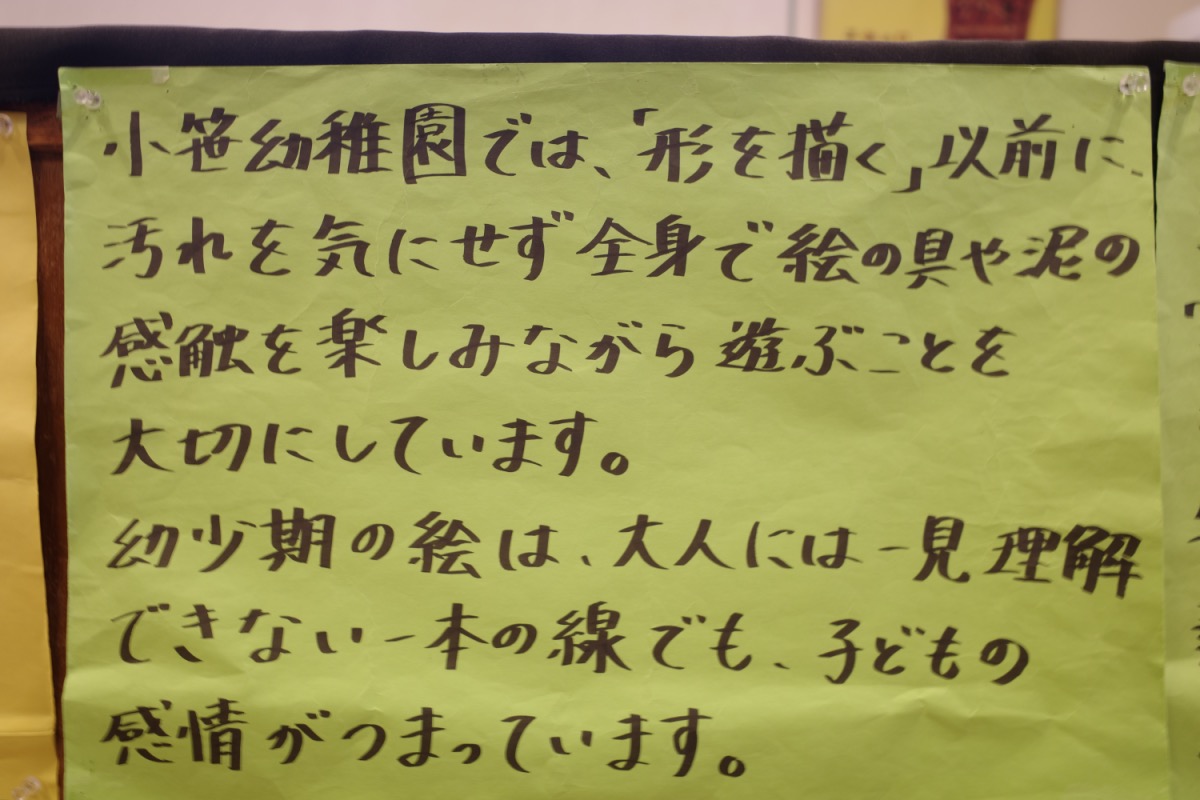 小笹幼稚園では、「形を描く」以前に、
汚れを気にせず全身で絵の具や泥の
感触を楽しみながら遊ぶことを
大切にしています。
幼少期の絵は、大人には一見理解
できない一本の線でも、子どもの
感情がつまっています。